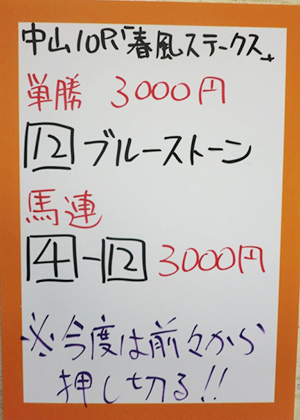 中山10R「春風ステークス」
単勝 3000円
12 ブルーストーン
馬連
4-12 3000円
※今度は前々から
押し切る!!